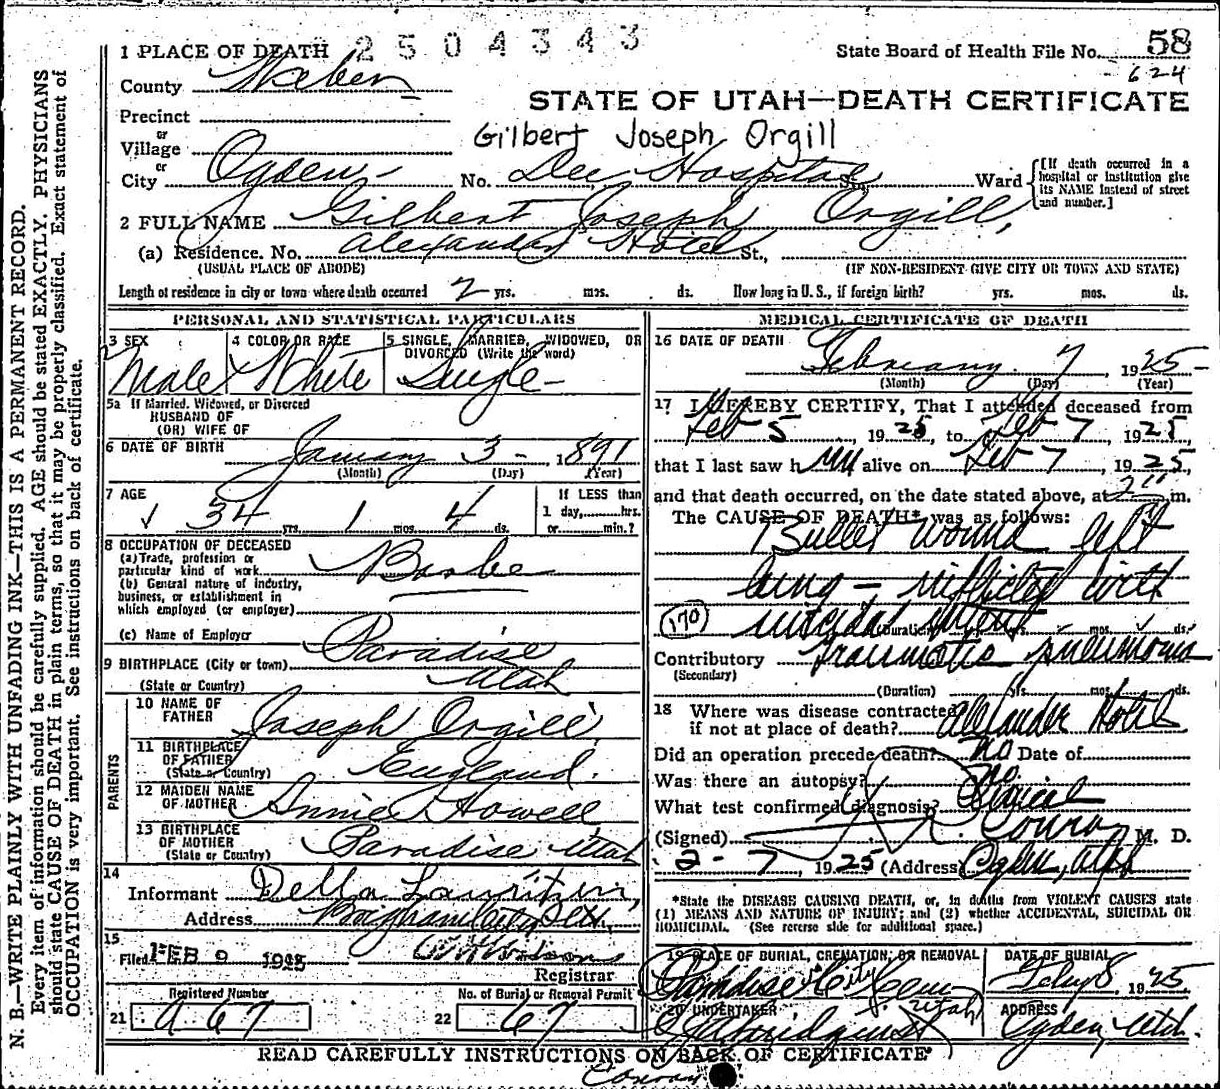 2504343
State Board of Health File No. 58
- 624
1 PLACE OF DEATH
County Weber
STATE OF UTAH—DEATH CERTIFICATE
Precinct
or
Village
Gilbert Joseph Orgill
or
City Ogden No. Dee Hospital St., Ward
[If death occurred in a hospital or institution give its NAME instead of street and number.]
2 FULL NAME Gilbert Joseph Orgill,
(a) Residence. No. Alexander Hotel St.,
(USUAL PLACE OF ABODE) (IF NON-RESIDENT GIVE CITY OR TOWN AND STATE)
Length of residence in city or town where death occurred 2 yrs. mos. ds. How long in U. S., if foreign birth? yrs. mos. ds.
PERSONAL AND STATISTICAL PARTICULARS
3 SEX 4 COLOR OR RACE 5 SINGLE, MARRIED, WIDOWED, OR
DIVORCED (Write the word)
Male White Single
5a If Married, Widowed, or Divorced
HUSBAND OF
(OR) WIFE OF
6 DATE OF BIRTH January 3 - 1891
(Month) (Day) (Year)
7 AGE 34 yrs. 1 mos. 4 ds.
If LESS than
1 day, hrs.
or min.?
8 OCCUPATION OF DECEASED
(a) Trade, profession or
particular kind of work Barber
(b) General nature of industry,
business, or establishment in
which employed (or employer)
(c) Name of Employer
9 BIRTHPLACE (City or town) Paradise
(State or Country) Utah
PARENTS
10 NAME OF
FATHER Joseph Orgill
11 BIRTHPLACE
OF FATHER
(State or Country) England.
12 MAIDEN NAME
OF MOTHER Annie Howell
13 BIRTHPLACE
OF MOTHER
(State or Country) Paradise Utah
14
Informant Della
Address Brigham City Utah.
15
Filed FEB 9 1925
Registrar
Registered Number No. of Burial or Removal Permit
21 967 22 67
MEDICAL CERTIFICATE OF DEATH
16 DATE OF DEATH February 7, 1925
(Month) (Day) (Year)
17 I HEREBY CERTIFY, That I attended deceased from
Feb 5, 1925, to Feb 7, 1925,
that I last saw him alive on Feb 7, 1925,
and that death occurred, on the date stated above, at m.
The CAUSE OF DEATH* was as follows:
Bullet wound left
lung — inflicted with
(170) suicidal intent
(Duration) yrs. mos. ds.
Contributory traumatic pneumonia
(Secondary)
(Duration) yrs. mos. ds.
18 Where was disease contracted
if not at place of death? Alexander Hotel
Did an operation precede death? no Date of
Was there an autopsy? no
What test confirmed diagnosis?
(Signed) M. D.
2-7 1925 (Address) Ogden, Utah
*State the DISEASE CAUSING DEATH, or, in deaths from VIOLENT CAUSES state
(1) MEANS AND NATURE OF INJURY; and (2) whether ACCIDENTAL, SUICIDAL OR
HOMICIDAL. (See reverse side for additional space.)
19 PLACE OF BURIAL, CREMATION, OR REMOVAL DATE OF BURIAL
Paradise City Cem Utah 8, 1925
20 UNDERTAKER ADDRESS
Ogden, Utah.
READ CAREFULLY INSTRUCTIONS ON BACK OF CERTIFICATE
N. B.—WRITE PLAINLY WITH UNFADING INK—THIS IS A PERMANENT RECORD.
Every item of information should be carefully supplied. AGE should be stated EXACTLY. PHYSICIANS
should state CAUSE OF DEATH in plain terms, so that it may be properly classified. Exact statement of
OCCUPATION is very important. See instructions on back of certificate.